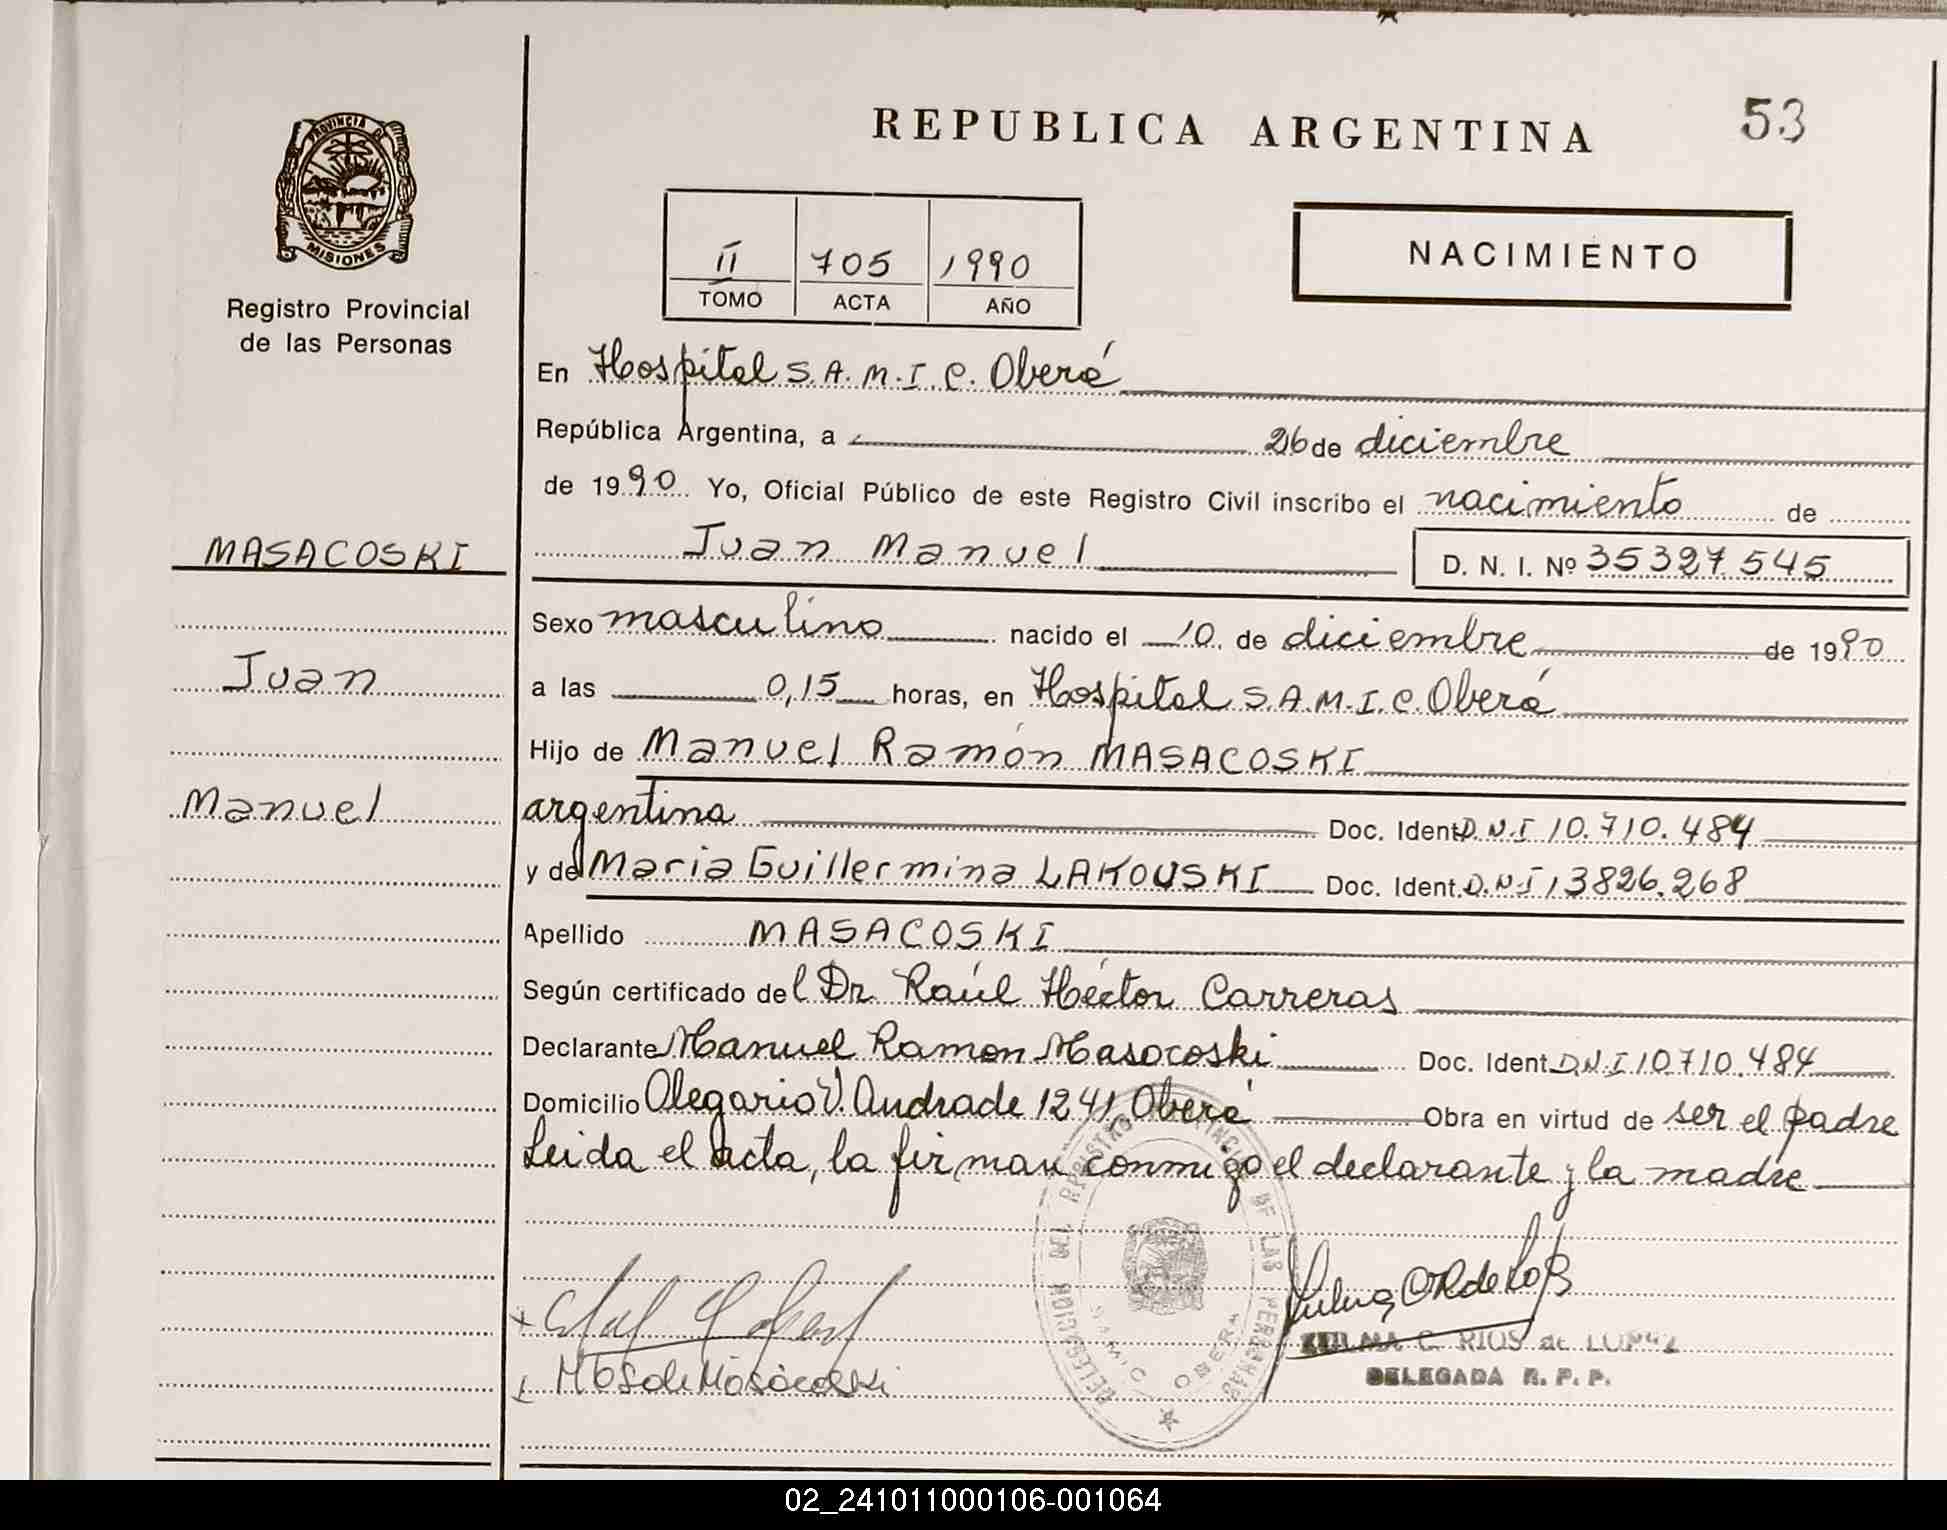 REPUBLICA ARGENTINA
53
PROVINCIA DE
MISIONES
Registro Provincial
de las Personas
II 705 1990
TOMO ACTA AÑO
NACIMIENTO
En Hospital S.A.M.I.C. Oberá
República Argentina, a 26 de diciembre
de 1990 Yo, Oficial Público de este Registro Civil inscribo el nacimiento de
Juan Manuel D. N. I. Nº 35327545
MASACOSKI
Juan
Manuel
Sexo masculino nacido el 10 de diciembre de 1990
a las 0,15 horas, en Hospital S.A.M.I.C. Oberá
Hijo de Manuel Ramón MASACOSKI
argentina Doc. Ident. D.N.I 10.710.484
y de Maria Guillermina LAKOUSKI Doc. Ident. D.N.I 13826.268
Apellido MASACOSKI
Según certificado del Dr. Raúl Héctor Carreras
Declarante Manuel Ramon Masacoski Doc. Ident. D.N.I 10710.484
Domicilio Olegario V. Andrade 1241, Oberá Obra en virtud de ser el padre
Leida el acta, la firman conmigo el declarante y la madre
DELEGACION DEL REGISTRO PROVINCIAL DE LAS PERSONAS
SAMIC OBERA
ZULMA C. RIOS de LOPEZ
DELEGADA R. P. P.
02_241011000106-001064